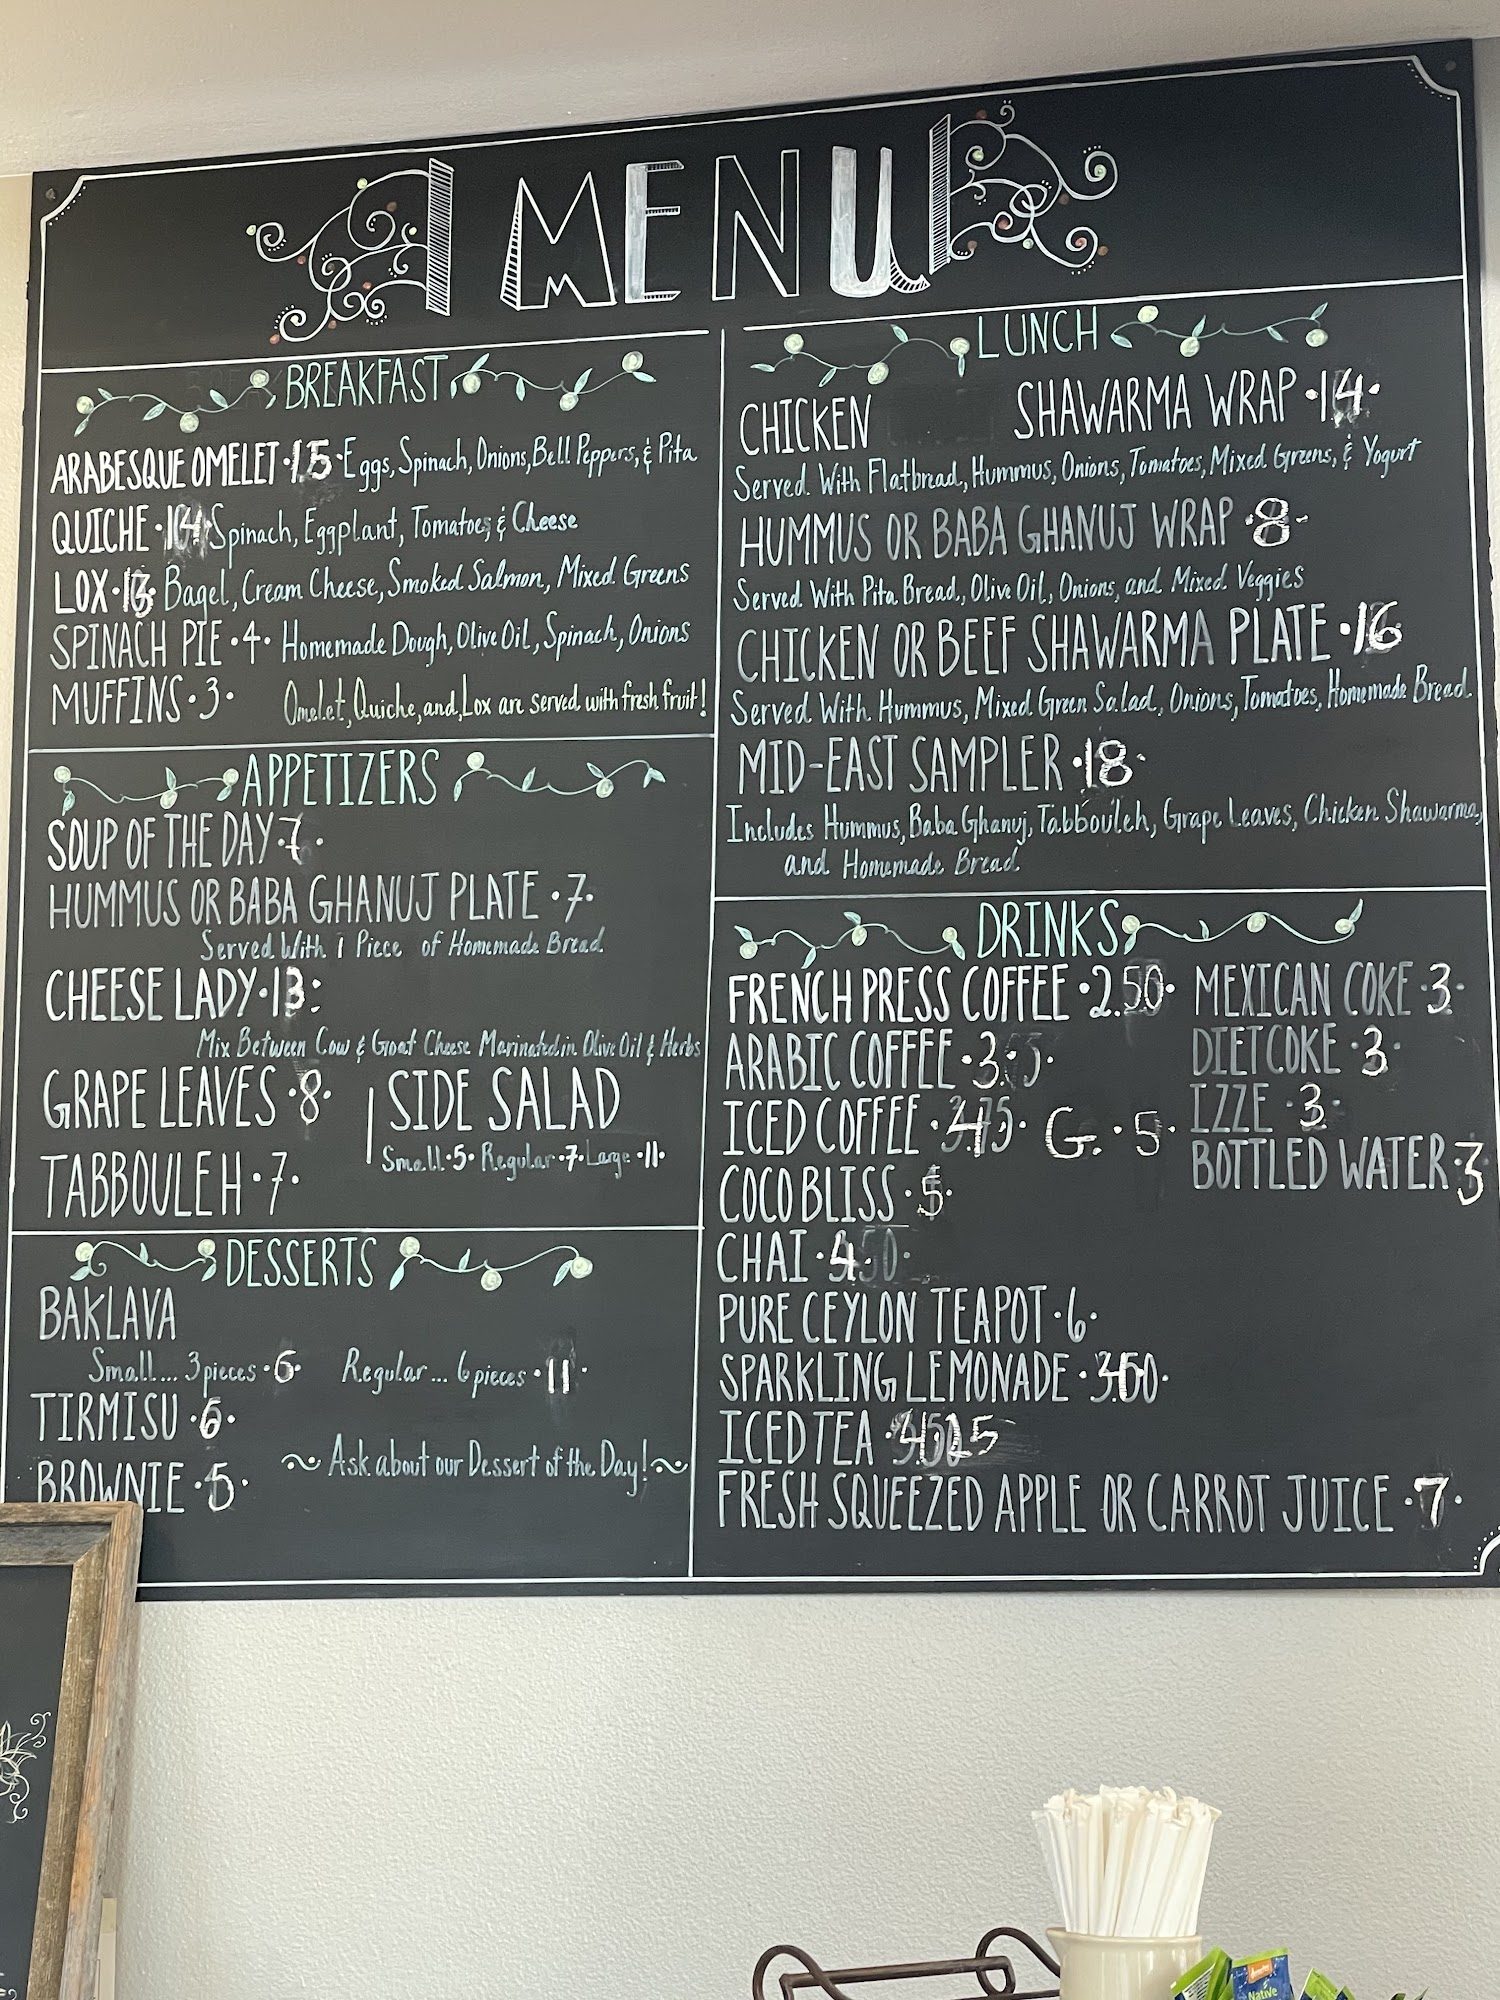 MENU
BREAKFAST
ARABESQUE OMELET · 15 · Eggs, Spinach, Onions, Bell Peppers, & Pita
QUICHE · 14 · Spinach, Eggplant, Tomatoes, & Cheese
LOX · Bagel, Cream Cheese, Smoked Salmon, Mixed Greens
SPINACH PIE · 4 · Homemade Dough, Olive Oil, Spinach, Onions
MUFFINS · 3 · Omelet, Quiche, and, Lox are served with fresh fruit!
APPETIZERS
SOUP OF THE DAY · 7 ·
HUMMUS OR BABA GHANUJ PLATE · 7 ·
Served With 1 Piece of Homemade Bread
CHEESE LADY · 13 :
Mix Between Cow & Goat Cheese Marinated in Olive Oil & Herbs
GRAPE LEAVES · 8 ·
TABBOULEH · 7 ·
SIDE SALAD
Small · 5 · Regular · 7 · Large · 11 ·
DESSERTS
BAKLAVA
Small... 3 pieces · 6 · Regular... 6 pieces · 11 ·
TIRMISU · 6 ·
BROWNIE · 5 ·
~ Ask about our Dessert of the Day! ~
LUNCH
CHICKEN SHAWARMA WRAP · 14 ·
Served With Flatbread, Hummus, Onions, Tomatoes, Mixed Greens, & Yogurt
HUMMUS OR BABA GHANUJ WRAP · 8 ·
Served With Pita Bread, Olive Oil, Onions, and Mixed Veggies
CHICKEN OR BEEF SHAWARMA PLATE · 16
Served With Hummus, Mixed Green Salad, Onions, Tomatoes, Homemade Bread
MID-EAST SAMPLER · 18 ·
Includes Hummus, Baba Ghanuj, Tabbouleh, Grape Leaves, Chicken Shawarma,
and Homemade Bread
DRINKS
FRENCH PRESS COFFEE · 2.50 ·
ARABIC COFFEE · 3 ·
ICED COFFEE · G. · 5 ·
COCO BLISS · 5 ·
CHAI · 4
PURE CEYLON TEAPOT · 6 ·
SPARKLING LEMONADE ·
ICED TEA ·
FRESH SQUEEZED APPLE OR CARROT JUICE · 7 ·
MEXICAN COKE · 3 ·
DIET COKE · 3
IZZE · 3 ·
BOTTLED WATER · 3
Native